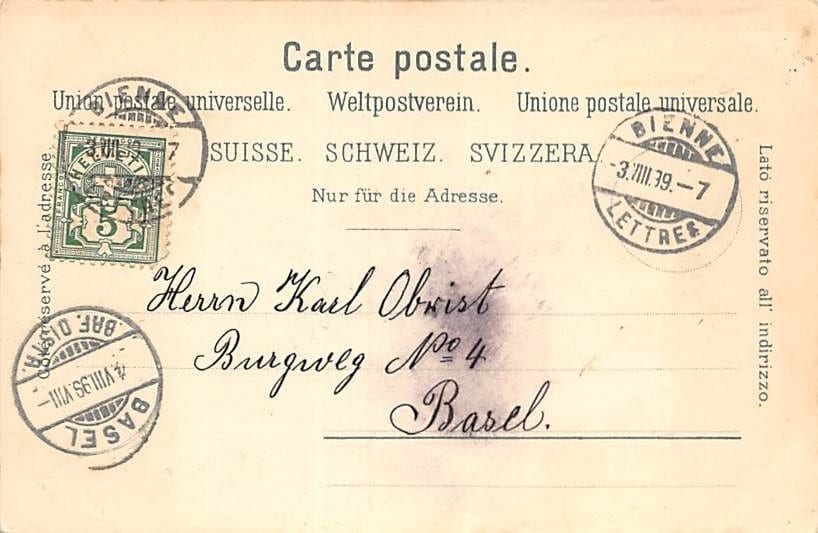 Carte postale.
Union postale universelle. Weltpostverein. Unione postale universale.
SUISSE. SCHWEIZ. SVIZZERA.
Nur für die Adresse.
Côté réservé à l'adresse.
Lato riservato all' indirizzo.
BIENNE
-3.VIII.99.-7
HELVETIA
FRANCO
5
BIENNE
-3.VIII.99.-7
LETTRES
Herrn Karl Obrist
Burgweg No 4
Basel.
BASEL
4.VIII.99.VIII-
BRF. DIST.